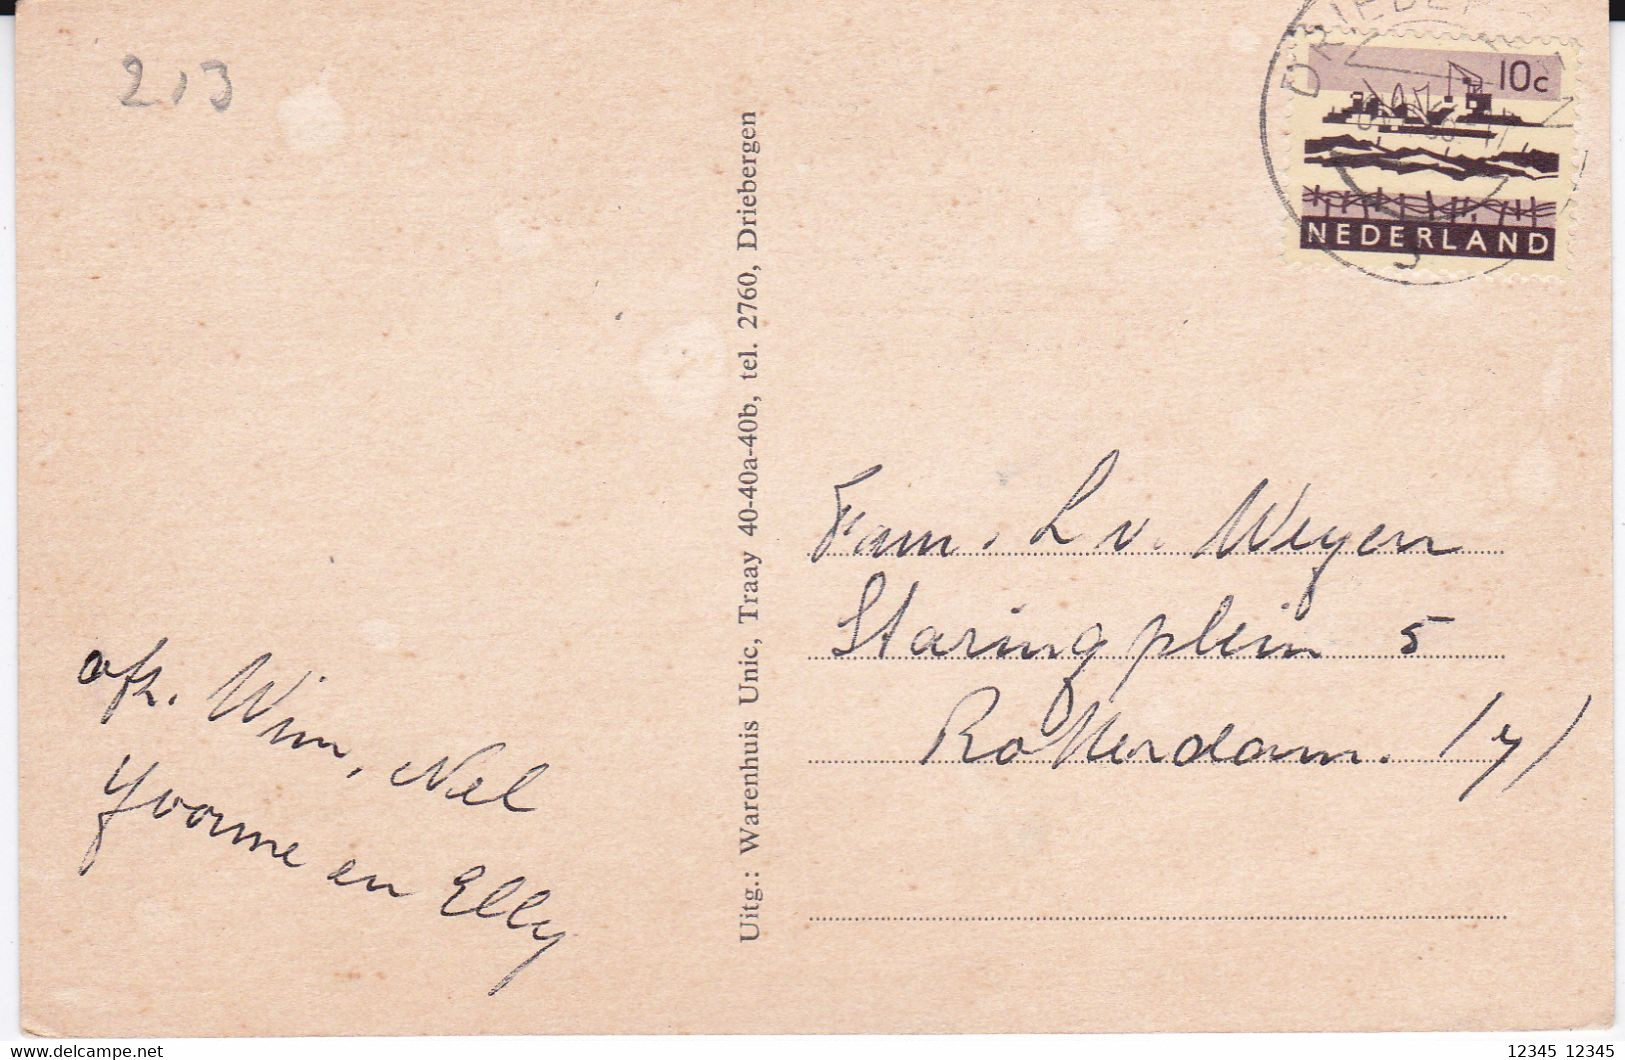 213
10c
NEDERLAND
Uitg.: Warenhuis Unic, Traay 40-40a-40b, tel. 2760, Driebergen
Fam. L v. Weyen
Staringplein 5
Rotterdam. (7)
afz. Wim, Nel
Yvonne en Elly
www.delcampe.net
12345 12345